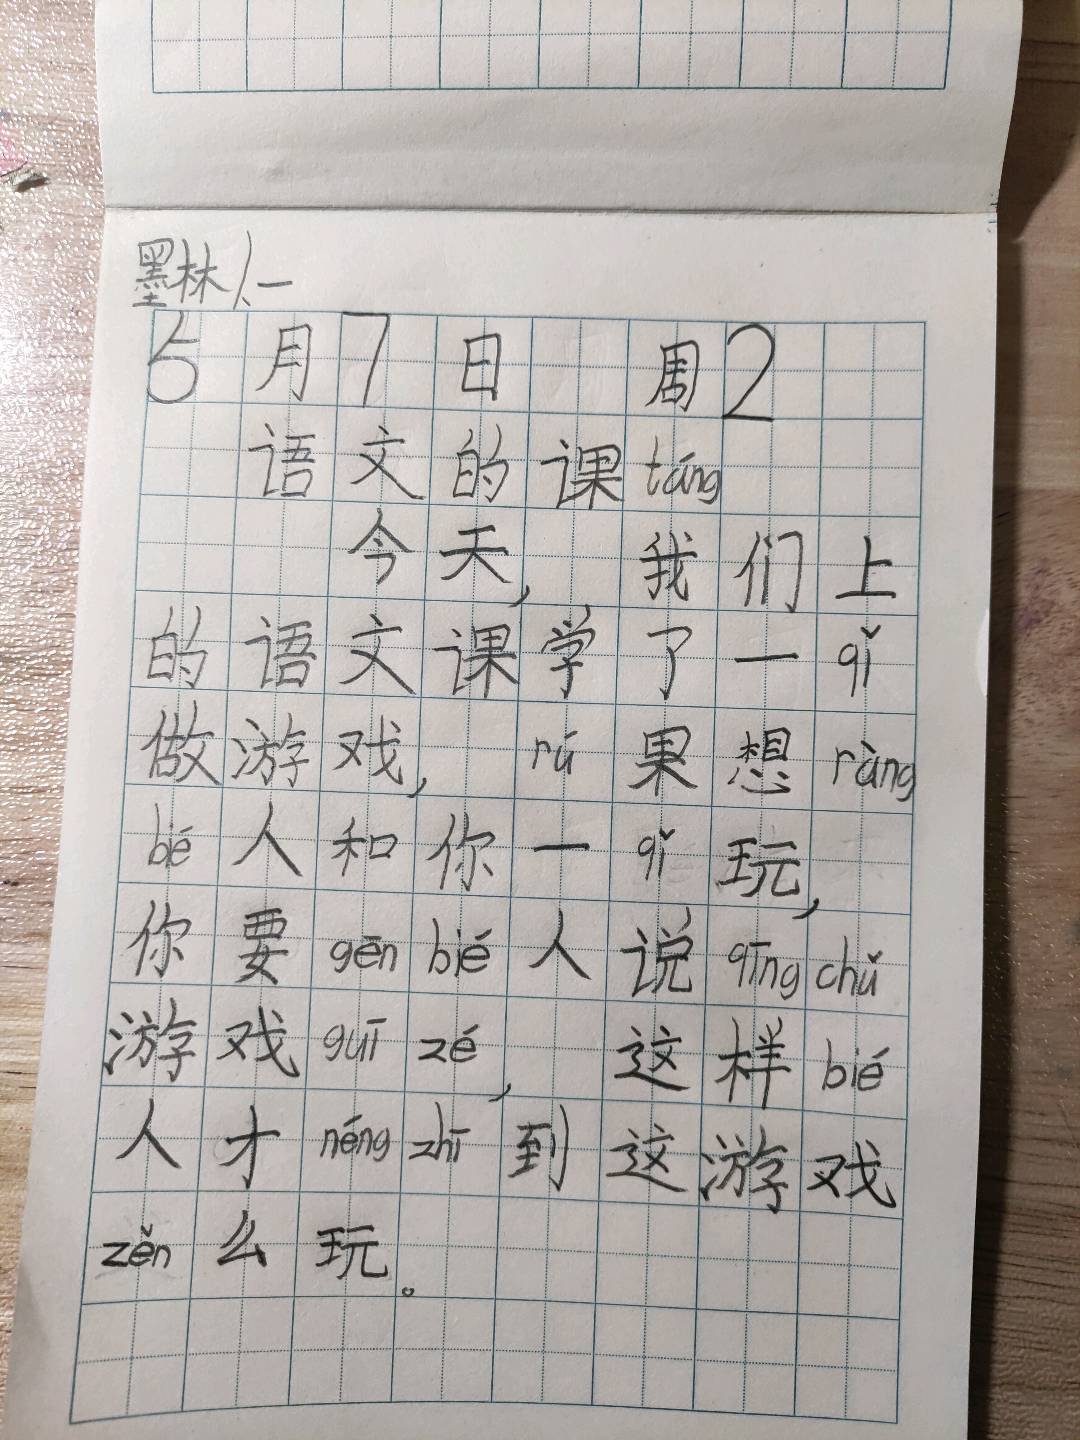 墨林八一
5月7日 周2
语文的课táng
今天, 我们上
的语文课学了一qǐ
做游戏, rú果想ràng
bié人和你一qǐ玩,
你要gēnbié人说qīngchǔ
游戏guīzé, 这样bié
人才néngzhī到这游戏
zěn么玩。